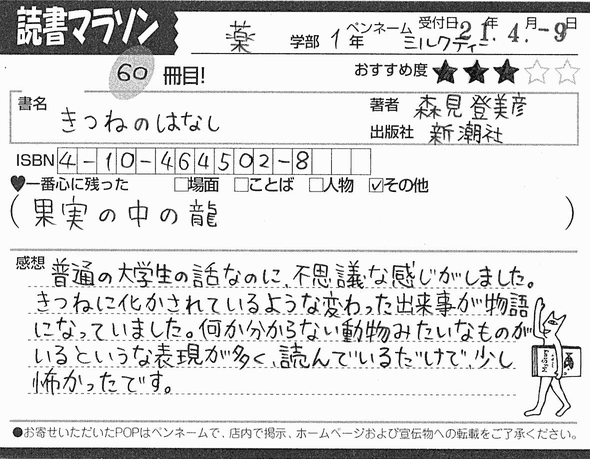 読書マラソン
薬 学部 1年 ペンネーム ミルクティー 受付日 21年 4.月-9日
60 冊目! おすすめ度 ★★★☆☆
書名 きつねのはなし
著者 森見登美彦
出版社 新潮社
ISBN 4-10-464502-8
♥一番心に残った □場面 □ことば □人物 ☑その他
(果実の中の龍)
感想 普通の大学生の話なのに、不思議な感じがしました。
きつねに化かされているような変わった出来事が物語
になっていました。何か分からない動物みたいなものが
いるというな表現が多く、読んでいるだけで、少し
怖かったです。
●お寄せいただいたPOPはペンネームで、店内で掲示、ホームページおよび宣伝物への転載をご了承ください。